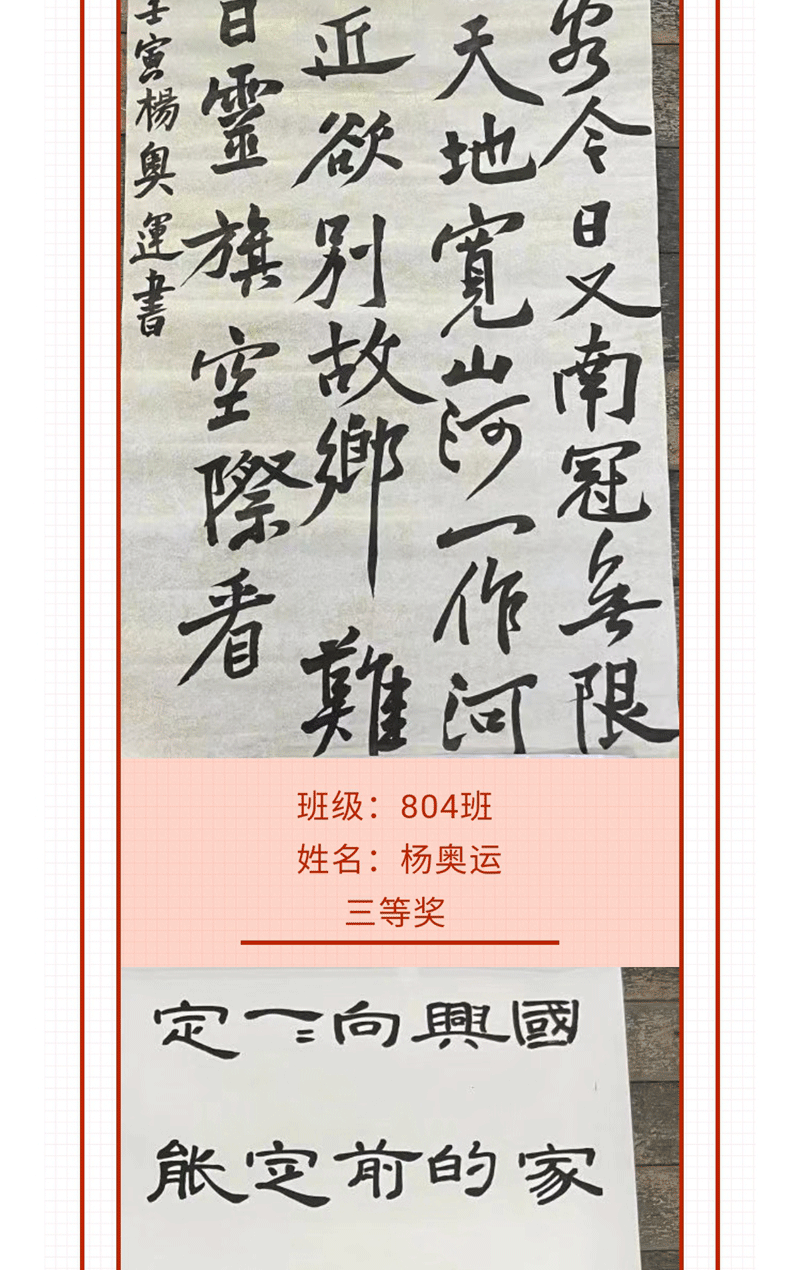 客今日又南冠無限
天地寬山河一作河
近欲别故鄉難
日靈旗空際看
壬寅楊奧運書
班级：804班
姓名：杨奥运
三等奖
國家
興的
向前
一定
定能